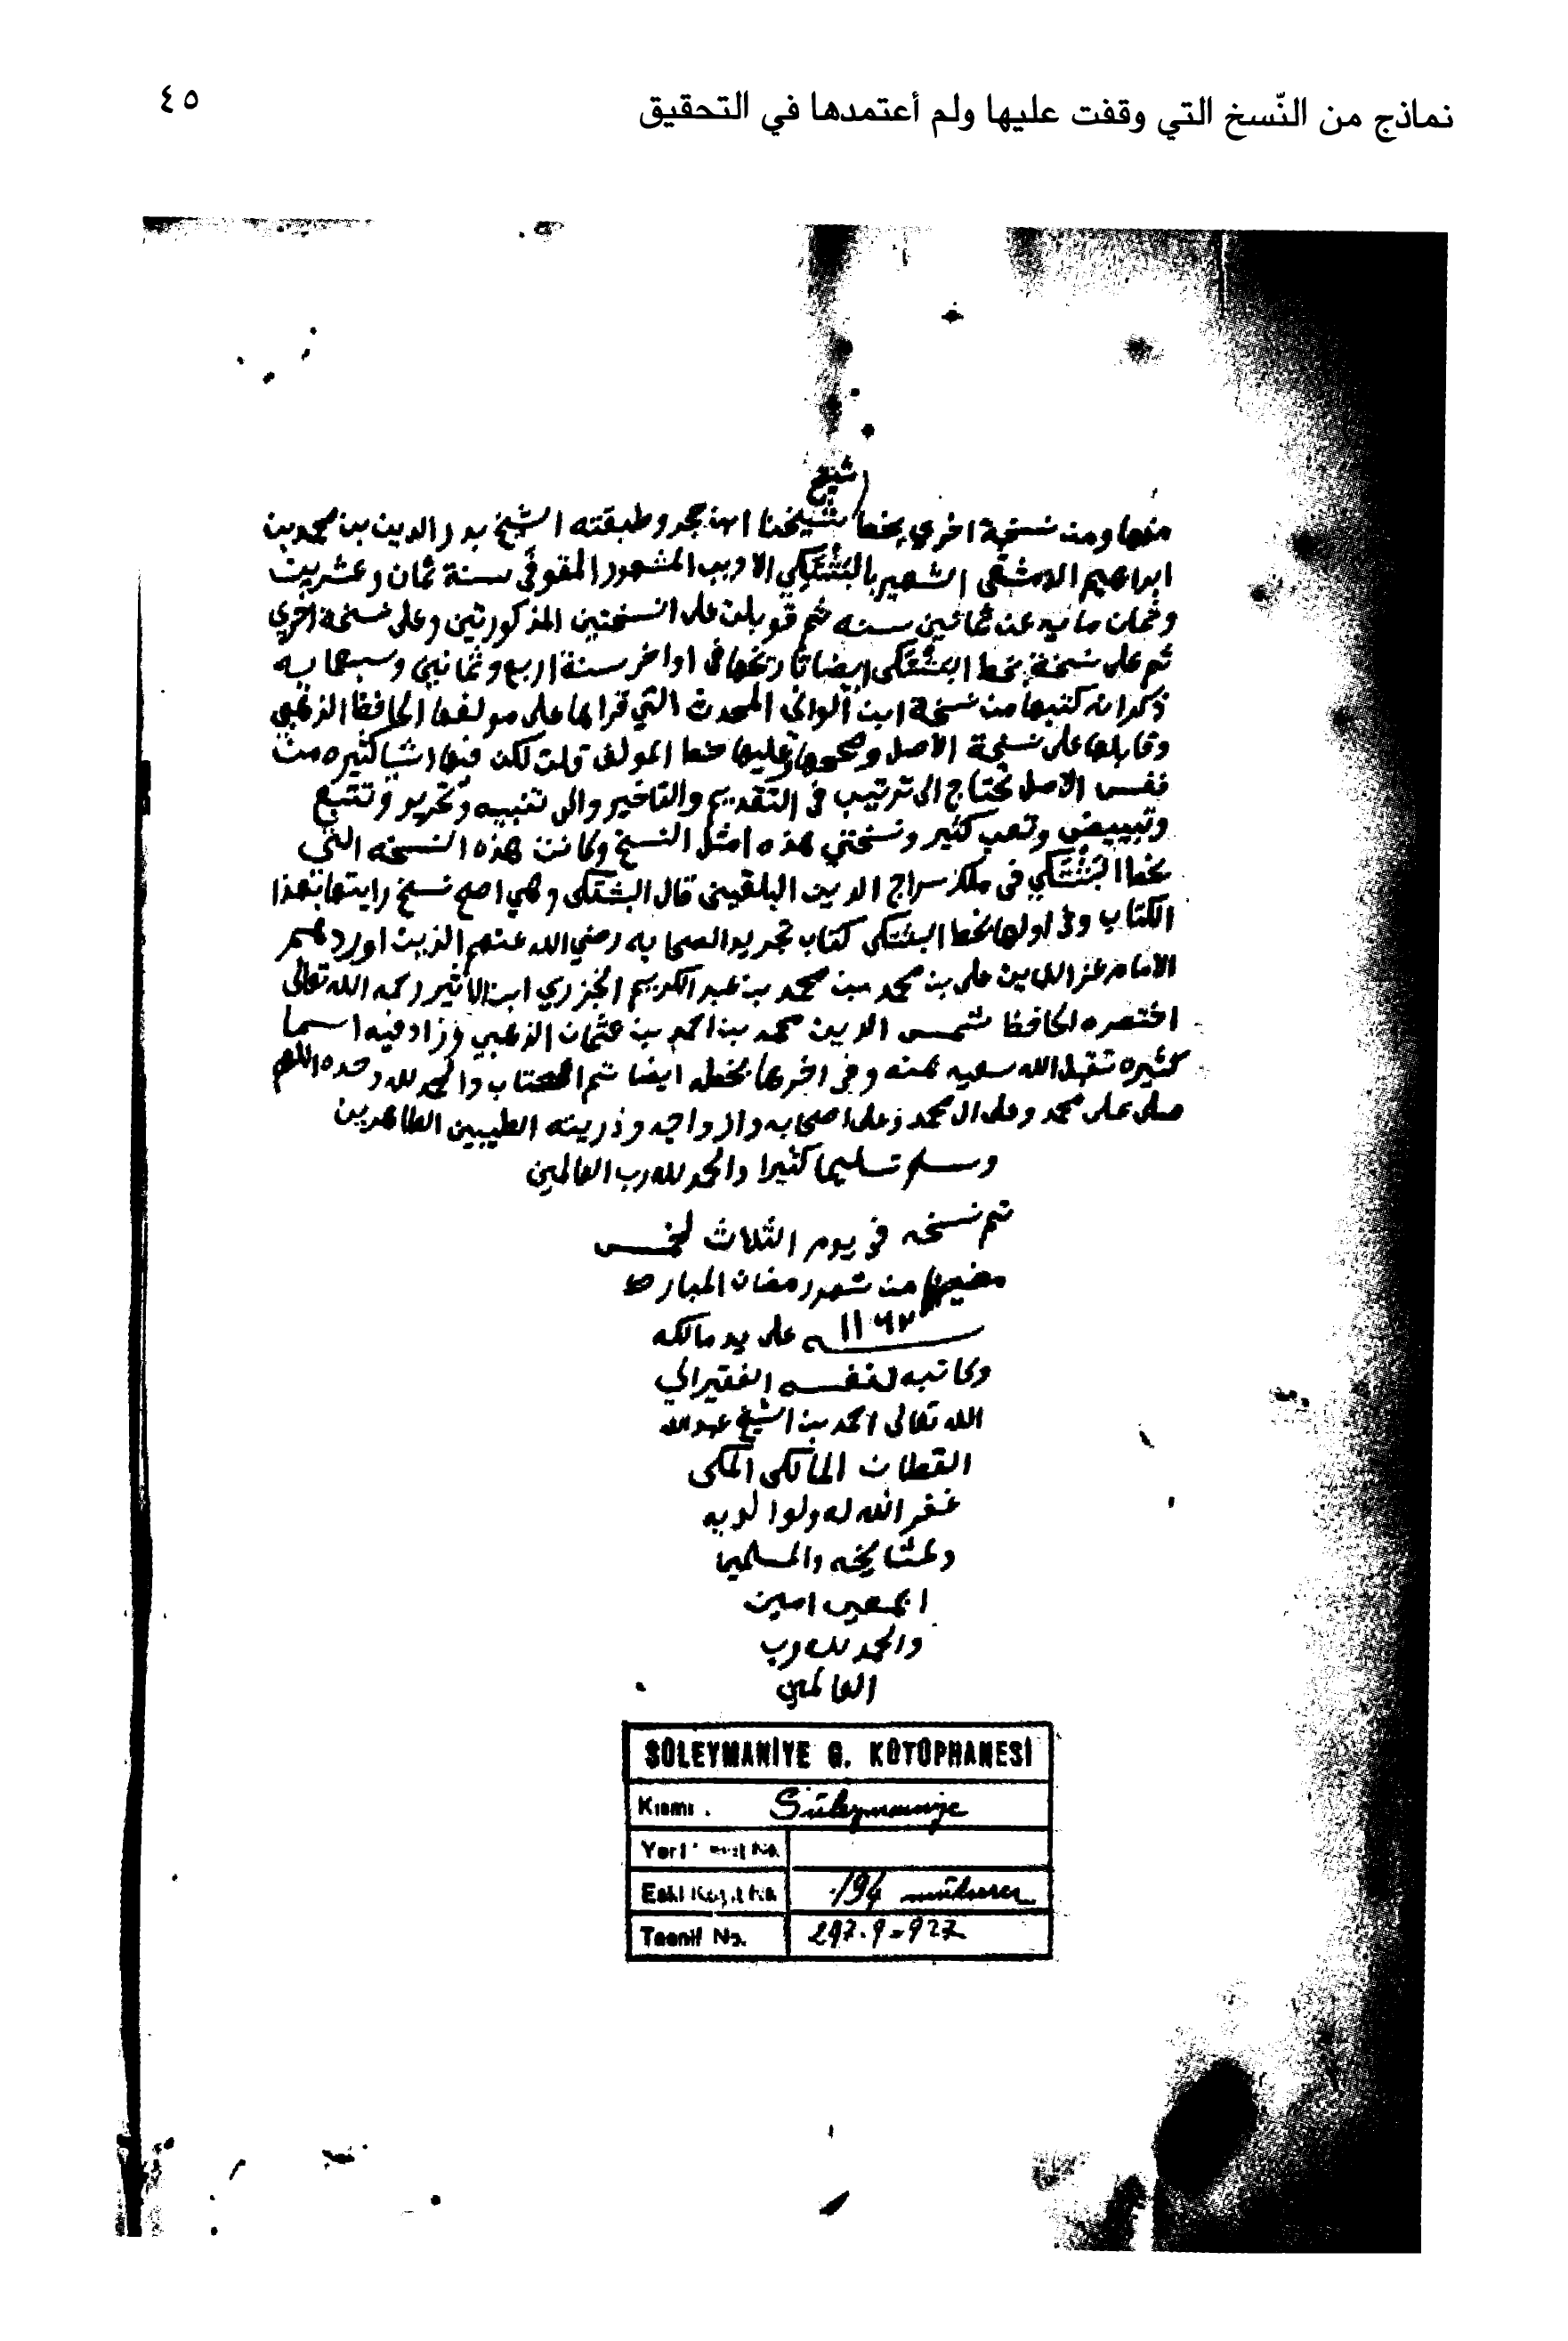 نماذج من النّسخ التي وقفت عليها ولم أعتمدها في التحقيق
٤٥
شيخ
منها ومن نسخة اخري بخط شيخنا ابن حجر وطبقته الشيخ بدر الدين بن محمد بن
ابراهيم الدمشقى الشهير بالبَشْتَكي الاديب المشهور المتوفى سنة ثمان وعشرين
وثمان مايه عن ثمانين سنه ثم قوبلت على النسختين المذكورتين وعلى نسخة اخري
ثم على نسخة بخط البشتكى ايضا تاريخها فى اواخر سنة اربع وثمانين وسبعمايه
ذكر انه كتبها من نسخة ابن الواني المحدث التي قراها على مولفها الحافظ الذهبي
وقابلها على نسخة الاصل وصححها وعليها خط المولف قلت لكن فيها اشيا كثيره من
نفس الاصل تحتاج الى ترتيب في التقديم والتاخير والى تنبيه وتحرير وتتبع
وتبييض وتعب كثير ونسختي هذه امثل النسخ وكانت هذه النسخه التي
بخط البَشْتَكي في ملك سراج الدين البلقينى قال البشتكى وهي اصح نسخ رايتها بهذا
الكتاب وفى اولها بخط البشتكى كتاب تجريد الصحابه رضي الله عنهم الذين اوردهم
الامام عز الدين على بن محمد بن محمد بن عبد الكريم الجزري ابن الاثير رحمه الله تعالى
اختصره الحافظ شمس الدين محمد بن احمد بن عثمان الذهبي وزاد فيه اسما
كثيره تقبل الله سعيه بمنه وفى اخرها بخطه ايضا تم الكتاب والحمد لله وحده اللهم
صلى على محمد وعلى ال محمد وعلى اصحابه وازواجه وذريته الطيبين الطاهرين
وسلم تسليما كثيرا والحمد لله رب العالمين
تم نسخه في يوم الثلاث لخمس
مضين من شهر رمضان المبارك
١١٦٢ على يد مالكه
وكاتبه لنفسه الفقير الي
الله تعالى احمد بن الشيخ عبد الله
القطان المالكى المكى
غفر الله له ولوالديه
ولمشايخه والمسلمين
اجمعين امين
والحمد لله رب
العالمين
SÜLEYMANİYE G. KÜTÜPHANESİ
Kısmı. Süleymaniye
Eski Kayıt No. 194
Tasnif No. 297.9=927